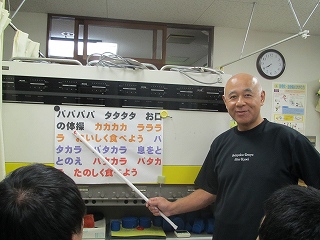 パパパパ タタタタ お口
の体操 カカカカ ラララ
ラ おいしく食べよう パ
タカラ パタカラ 息をと
とのえ パタカラ パタカ
ラ たのしく食べよう